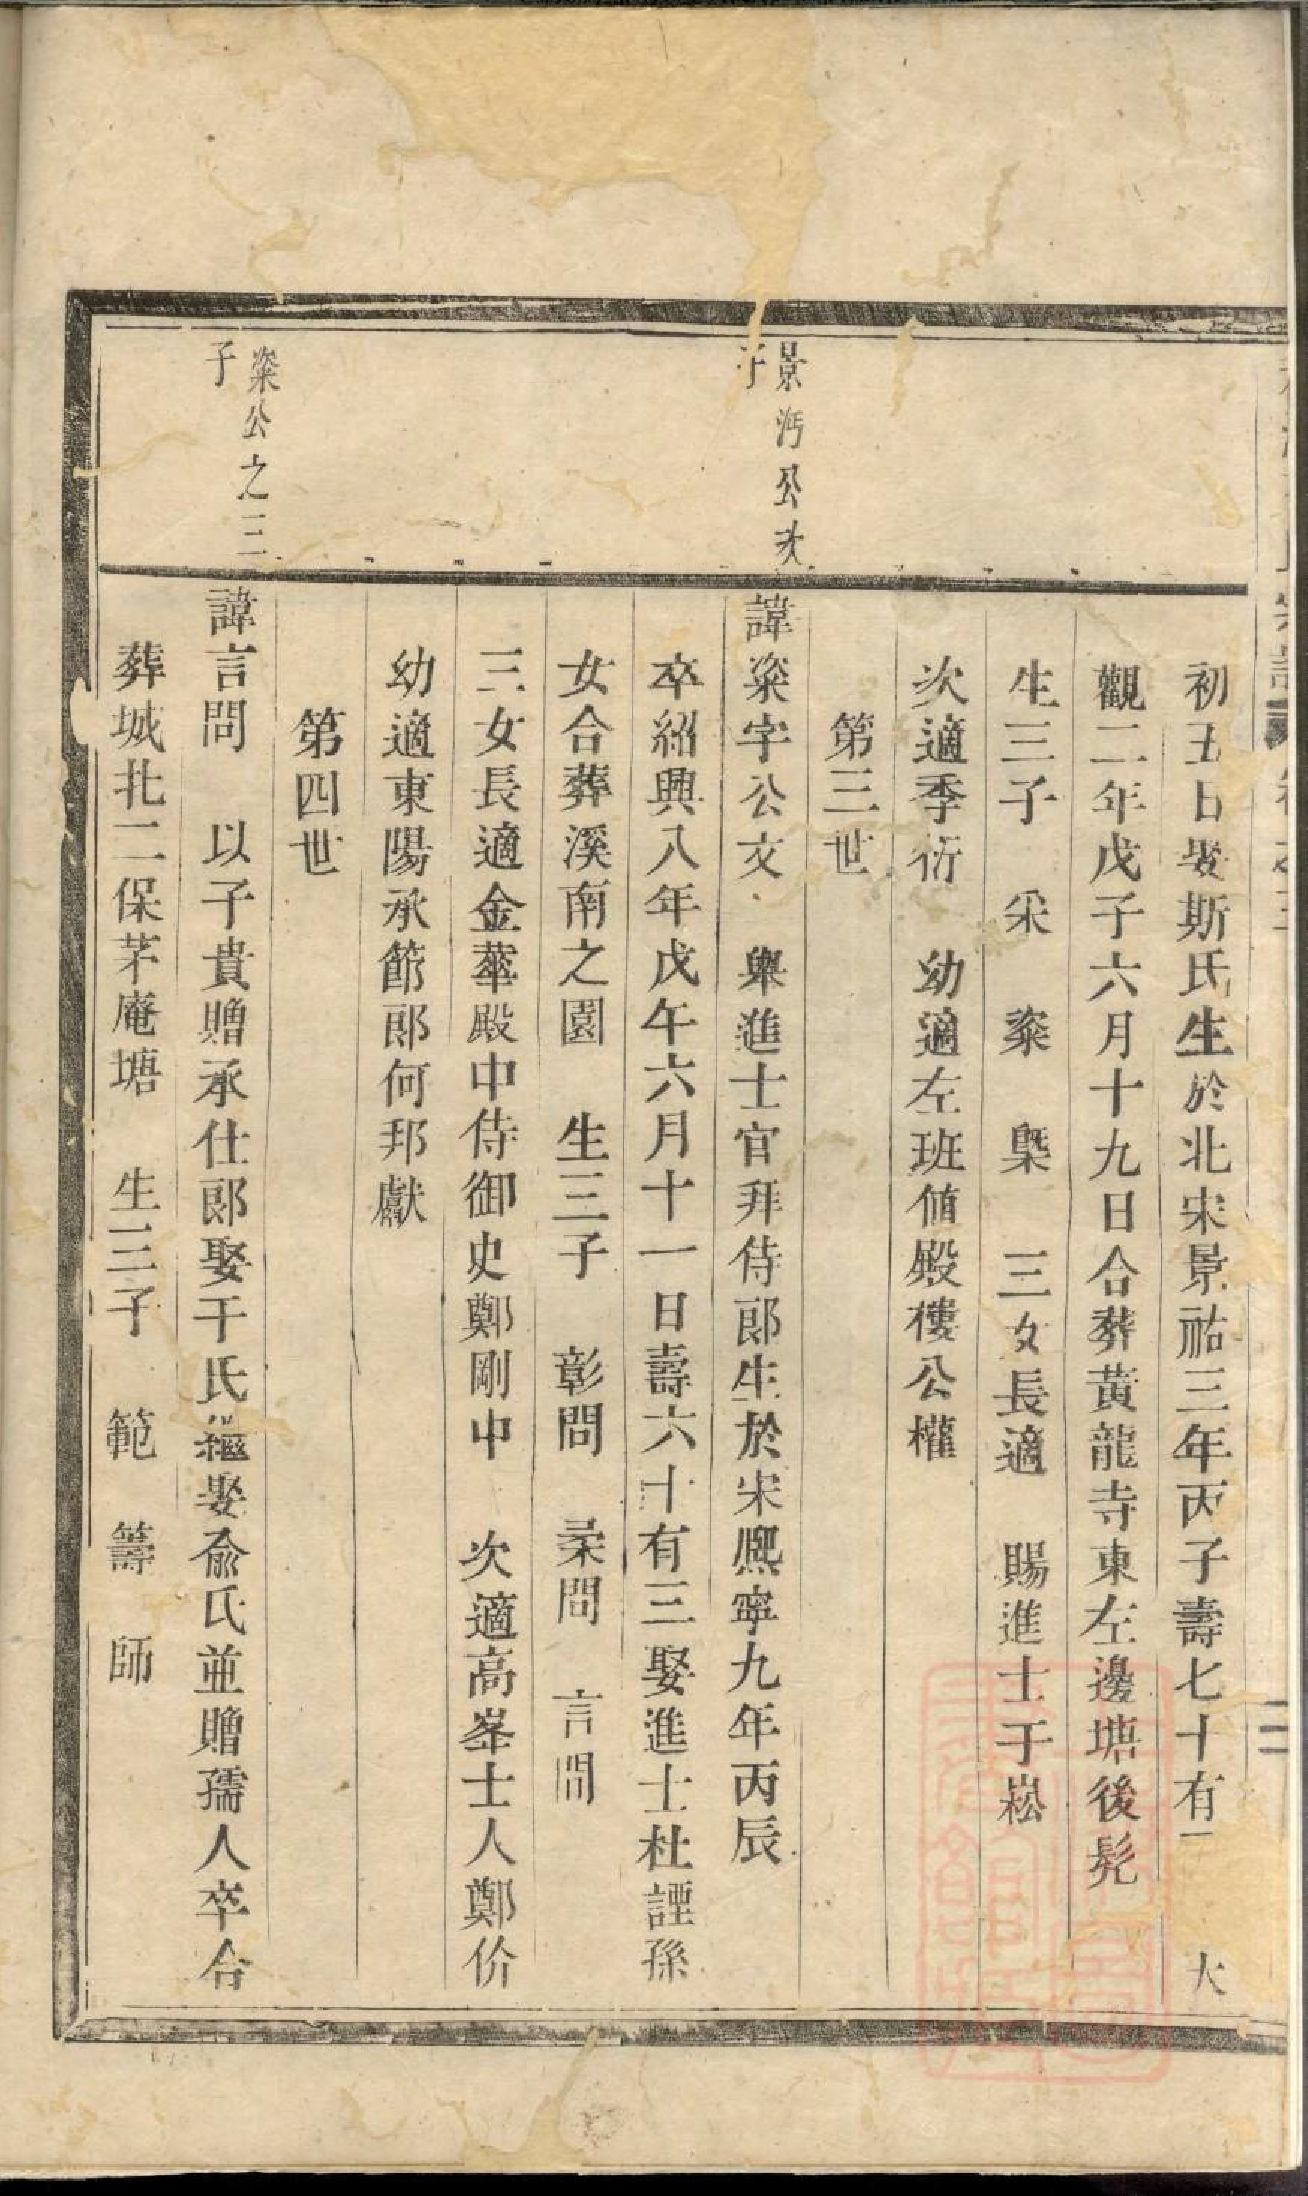 初五日娶斯氏生於北宋景祐三年丙子壽七十有 大
觀二年戊子六月十九日合葬黃龍寺東左邊塘後髡
生三子 采 粢 槩 三女長適 賜進士于崧
次適季衍 幼適左班値殿樓公權
第三世
景沔公次
子
諱粢字公文 舉進士官拜侍郎生於宋熈寧九年丙辰
卒紹興八年戊午六月十一日壽六十有三娶進士杜諲孫
女合葬溪南之園 生三子 彰問 柔問 言問
三女長適金華殿中侍御史鄭剛中 次適高峯士人鄭价
幼適東陽承節郎何邦獻
第四世
粢公之三
子
諱言問 以子貴贈承仕郎娶干氏繼娶俞氏並贈孺人卒合
葬城北二保茅庵塘 生三子 範 籌 師